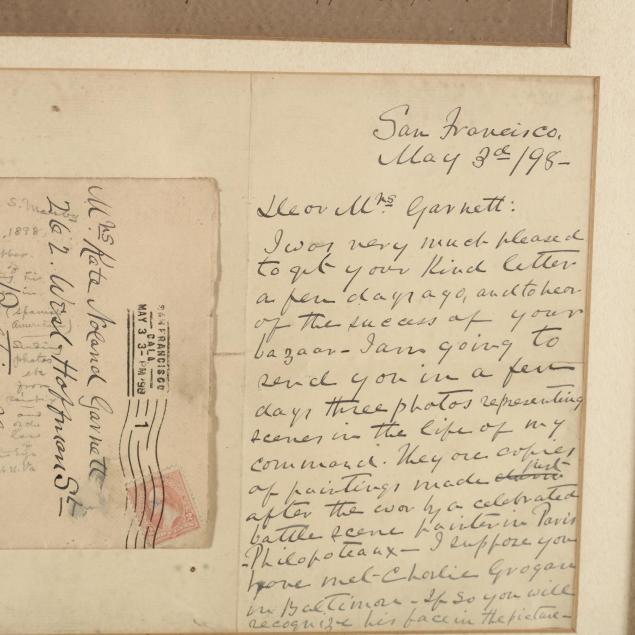 San Francisco,
May 3d/98-
Dear Mrs Garnett:
I was very much pleased
to get your kind letter
a few days ago, and to hear
of the success of your
bazaar - I am going to
send you in a few
days three photos representing
scenes in the life of my
command. They are copies
of paintings made just
after the war by a celebrated
battle scene painter in Paris
-Philopoteaux- I suppose you
have met Charlie Grogan
in Baltimore - If so you will
recognize his face in the picture-
Mrs Kate Noland Garnett
262. West Hoffman St
SAN FRANCISCO
CALA
MAY 3 3-PM '98
1
1898,
photos
from